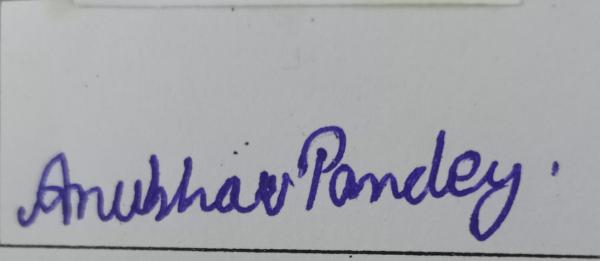 Anubhav Pandey.